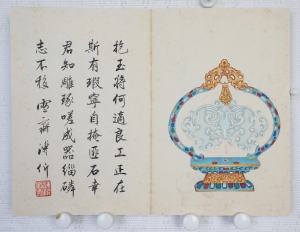 抱玉将何適良工正在
斯有瑕寧自掩匪石幸
君知雕琢嗟成器緇磷
志不移 雪齋溥伒